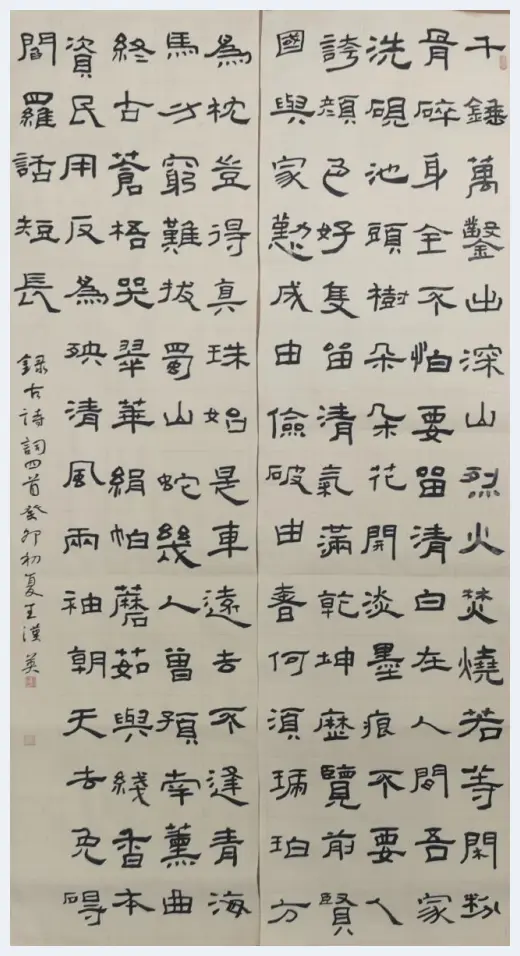 千錘萬鑿出深山烈火焚燒若等閑粉
骨碎身全不怕要留清白在人間吾家
洗硯池頭樹朵朵花開淡墨痕不要人
誇顏色好隻留清氣滿乾坤歷覽前賢
國與家懃成由儉破由奢何須琥珀方
為枕豈得真珠始是車遠去不逢青海
馬力窮難拔蜀山蛇幾人曾預南薰曲
終古蒼梧哭翠華絹帕蘑菇與綫香本
資民用反為殃清風兩袖朝天去免碍
閻羅話短長
錄古詩詞四首癸卯初夏王漢英